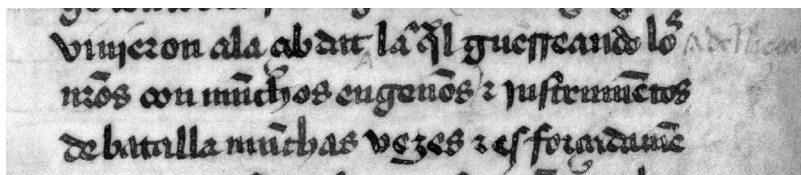 vinieron ala abdat la q̃l guerreando lõs
nr̃os con mũchos engenõs ⁊ jnstrumẽtos
de batalla mũchas vezes ⁊ esforçadamẽ